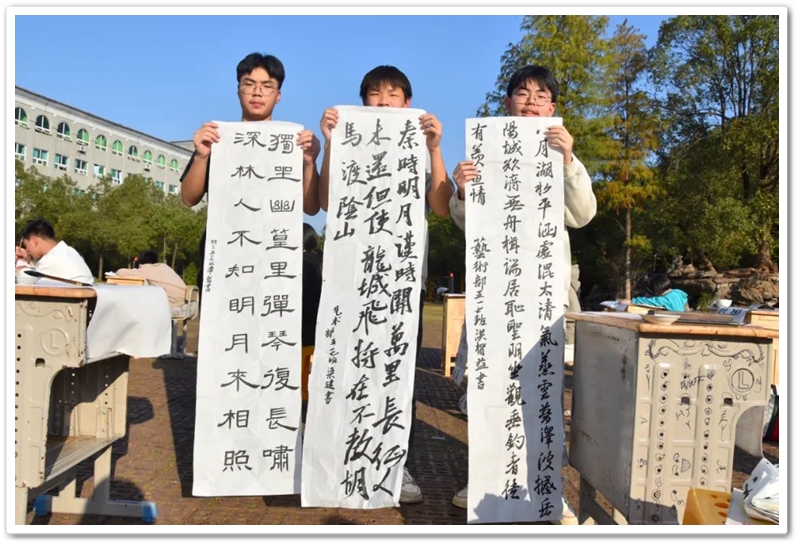 獨坐幽篁里彈琴復長嘯
深林人不知明月來相照
秦時明月漢時關萬里長征人
未還但使龍城飛將在不教胡
馬渡陰山
月湖水平涵虛混太清氣蒸雲夢澤波撼岳
陽城欲濟無舟楫端居恥聖明坐觀垂釣者徒
有羨魚情
藝術部五一七班智益書